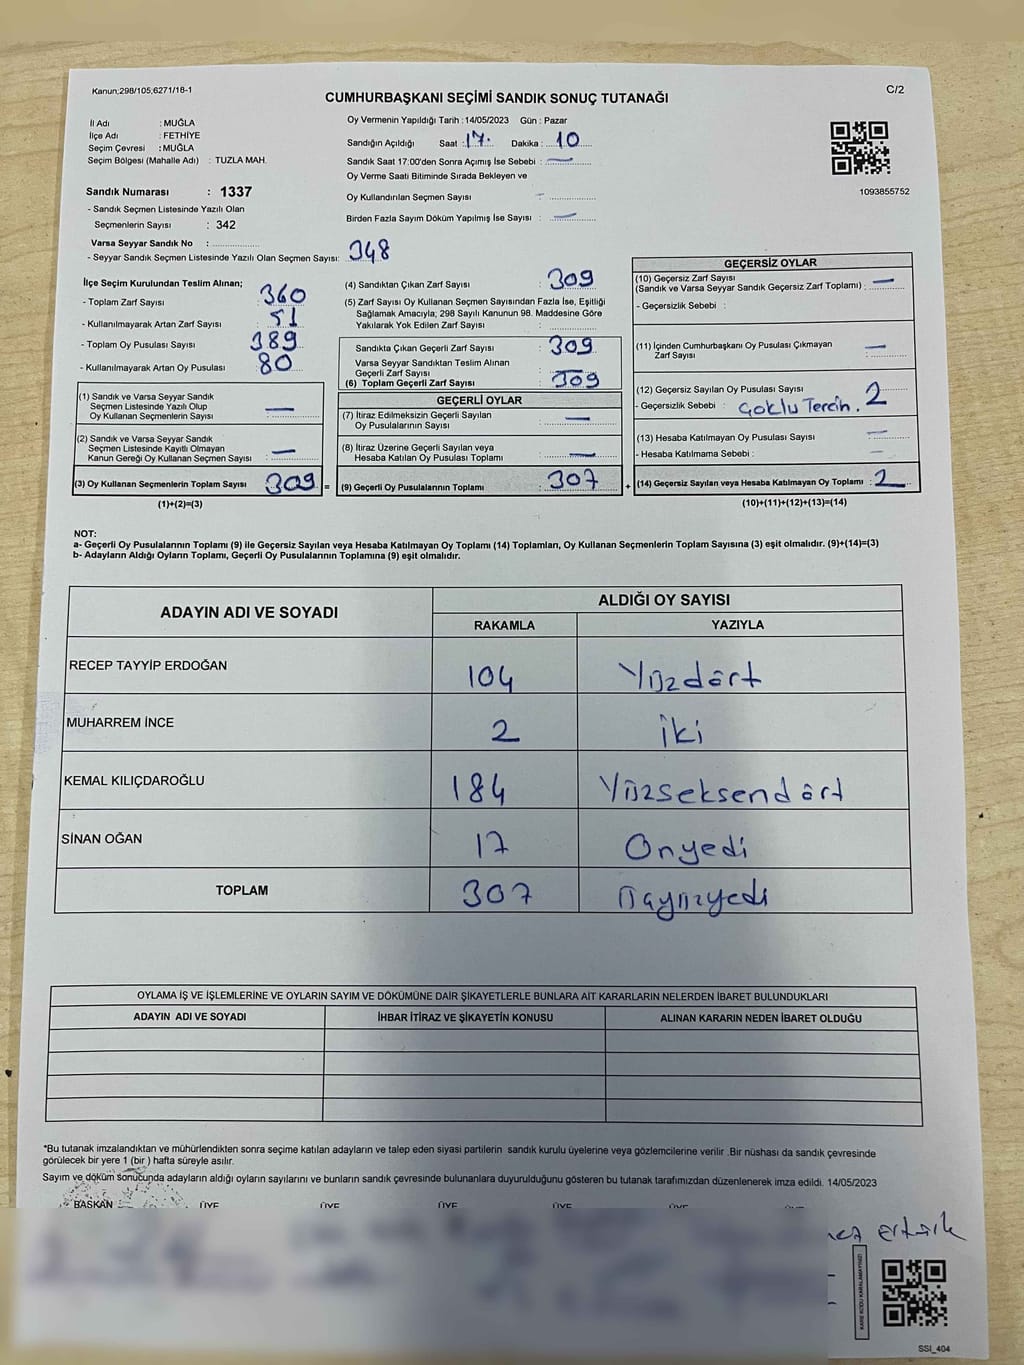 Kanun;298/105;6271/18-1
C/2
CUMHURBAŞKANI SEÇİMİ SANDIK SONUÇ TUTANAĞI
İl Adı : MUĞLA
İlçe Adı : FETHİYE
Seçim Çevresi : MUĞLA
Seçim Bölgesi (Mahalle Adı) : TUZLA MAH.
Sandık Numarası : 1337
- Sandık Seçmen Listesinde Yazılı Olan
Seçmenlerin Sayısı : 342
Varsa Seyyar Sandık No :
- Seyyar Sandık Seçmen Listesinde Yazılı Olan Seçmen Sayısı: 348
Oy Vermenin Yapıldığı Tarih : 14/05/2023 Gün : Pazar
Sandığın Açıldığı Saat : 17. Dakika : 10
Sandık Saat 17:00'den Sonra Açımış İse Sebebi : —
Oy Verme Saati Bitiminde Sırada Bekleyen ve
Oy Kullandırılan Seçmen Sayısı : -
Birden Fazla Sayım Döküm Yapılmış İse Sayısı : —
1093855752
İlçe Seçim Kurulundan Teslim Alınan;
- Toplam Zarf Sayısı : 360
- Kullanılmayarak Artan Zarf Sayısı : 51
- Toplam Oy Pusulası Sayısı : 389
- Kullanılmayarak Artan Oy Pusulası : 80
(1) Sandık ve Varsa Seyyar Sandık
Seçmen Listesinde Yazılı Olup
Oy Kullanan Seçmenlerin Sayısı : —
(2) Sandık ve Varsa Seyyar Sandık
Seçmen Listesinde Kayıtlı Olmayan
Kanun Gereği Oy Kullanan Seçmen Sayısı : —
(3) Oy Kullanan Seçmenlerin Toplam Sayısı : 309 =
(1)+(2)=(3)
(4) Sandıktan Çıkan Zarf Sayısı : 309
(5) Zarf Sayısı Oy Kullanan Seçmen Sayısından Fazla İse, Eşitliği
Sağlamak Amacıyla; 298 Sayılı Kanunun 98. Maddesine Göre
Yakılarak Yok Edilen Zarf Sayısı :
Sandıkta Çıkan Geçerli Zarf Sayısı : 309
Varsa Seyyar Sandıktan Teslim Alınan
Geçerli Zarf Sayısı : —
(6) Toplam Geçerli Zarf Sayısı : 309
GEÇERLİ OYLAR
(7) İtiraz Edilmeksizin Geçerli Sayılan
Oy Pusulalarının Sayısı : —
(8) İtiraz Üzerine Geçerli Sayılan veya
Hesaba Katılan Oy Pusulası Toplamı : —
(9) Geçerli Oy Pusulalarının Toplamı : 307 +
GEÇERSİZ OYLAR
(10) Geçersiz Zarf Sayısı
(Sandık ve Varsa Seyyar Sandık Geçersiz Zarf Toplamı) : —
- Geçersizlik Sebebi :
(11) İçinden Cumhurbaşkanı Oy Pusulası Çıkmayan
Zarf Sayısı : —
(12) Geçersiz Sayılan Oy Pusulası Sayısı : 2
- Geçersizlik Sebebi : Çoklu Tercih.
(13) Hesaba Katılmayan Oy Pusulası Sayısı : —
- Hesaba Katılmama Sebebi : —
(14) Geçersiz Sayılan veya Hesaba Katılmayan Oy Toplamı : 2
(10)+(11)+(12)+(13)=(14)
NOT:
a- Geçerli Oy Pusulalarının Toplamı (9) ile Geçersiz Sayılan veya Hesaba Katılmayan Oy Toplamı (14) Toplamları, Oy Kullanan Seçmenlerin Toplam Sayısına (3) eşit olmalıdır. (9)+(14)=(3)
b- Adayların Aldığı Oyların Toplamı, Geçerli Oy Pusulalarının Toplamına (9) eşit olmalıdır.
ADAYIN ADI VE SOYADI ALDIĞI OY SAYISI
RAKAMLA YAZIYLA
RECEP TAYYİP ERDOĞAN 104 Yüzdört
MUHARREM İNCE 2 İki
KEMAL KILIÇDAROĞLU 184 Yüzseksendört
SİNAN OĞAN 17 Onyedi
TOPLAM 307 Üçyüzyedi
OYLAMA İŞ VE İŞLEMLERİNE VE OYLARIN SAYIM VE DÖKÜMÜNE DAİR ŞİKAYETLERLE BUNLARA AİT KARARLARIN NELERDEN İBARET BULUNDUKLARI
ADAYIN ADI VE SOYADI İHBAR İTİRAZ VE ŞİKAYETİN KONUSU ALINAN KARARIN NEDEN İBARET OLDUĞU
*Bu tutanak imzalandıktan ve mühürlendikten sonra seçime katılan adayların ve talep eden siyasi partilerin sandık kurulu üyelerine veya gözlemcilerine verilir .Bir nüshası da sandık çevresinde
görülecek bir yere 1 (bir ) hafta süreyle asılır.
Sayım ve döküm sonucunda adayların aldığı oyların sayılarını ve bunların sandık çevresinde bulunanlara duyurulduğunu gösteren bu tutanak tarafımızdan düzenlenerek imza edildi. 14/05/2023
BAŞKAN ÜYE ÜYE ÜYE ÜYE ÜYE ÜYE
KARE KODU KARALAMAYINIZ!
SSI_404